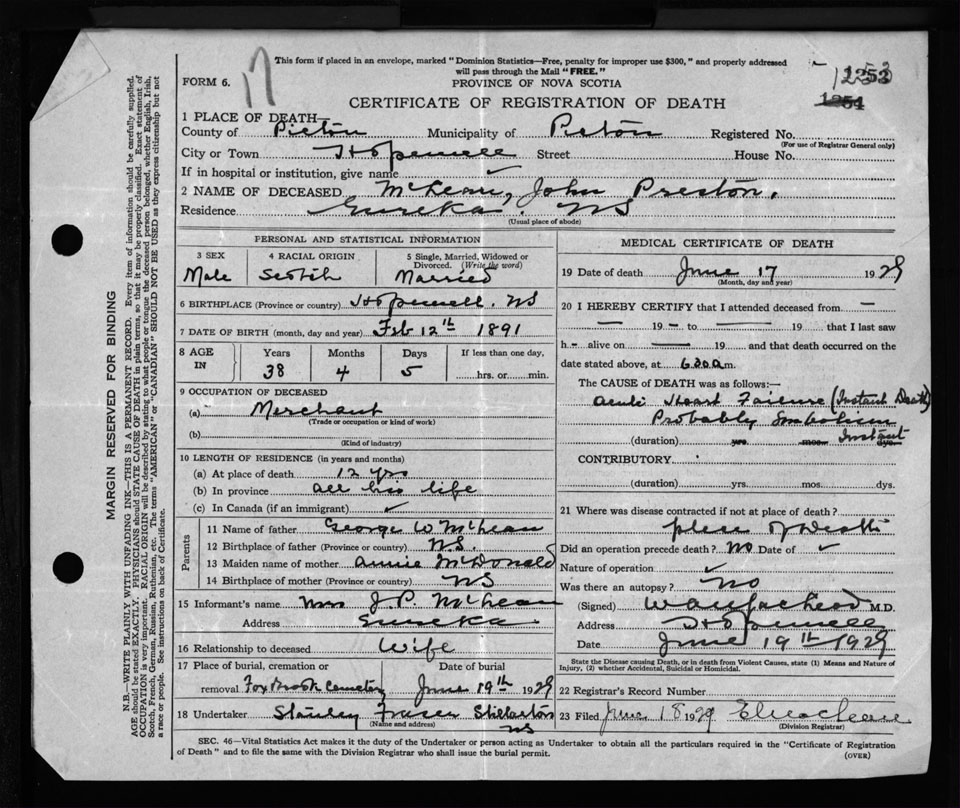 17
This form if placed in an envelope, marked "Dominion Statistics—Free, penalty for improper use $300," and properly addressed
will pass through the Mail "FREE."
1253
1254
FORM 6.
PROVINCE OF NOVA SCOTIA
CERTIFICATE OF REGISTRATION OF DEATH
1 PLACE OF DEATH—
County of Pictou Municipality of Pictou Registered No.
(For use of Registrar General only)
City or Town Hopewell Street House No.
If in hospital or institution, give name ✓
2 NAME OF DECEASED McLean, John Preston.
Residence Eureka. NS
(Usual place of abode)
PERSONAL AND STATISTICAL INFORMATION
3 SEX 4 RACIAL ORIGIN 5 Single, Married, Widowed or
Divorced. (Write the word)
Male Scotch Married
6 BIRTHPLACE (Province or country) Hopewell. NS
7 DATE OF BIRTH (month, day and year) Feb 12th 1891
8 AGE IN Years Months Days If less than one day,
38 4 5 hrs. or min.
9 OCCUPATION OF DECEASED
(a) Merchant
(Trade or occupation or kind of work)
(b)
(Kind of industry)
10 LENGTH OF RESIDENCE (in years and months)
(a) At place of death 12 yrs
(b) In province all his life
(c) In Canada (if an immigrant) ✓
Parents
11 Name of father George W McLean
12 Birthplace of father (Province or country) N.S.
13 Maiden name of mother Annie McDonald
14 Birthplace of mother (Province or country) NS
15 Informant's name Mrs J.P. McLean
Address Eureka
16 Relationship to deceased Wife
17 Place of burial, cremation or Date of burial
removal Fox Brook Cemetery June 19th 1929
18 Undertaker Stanley Fraser Stellarton
(Name and address)
NS
MEDICAL CERTIFICATE OF DEATH
19 Date of death June 17 1929
(Month, day and year)
20 I HEREBY CERTIFY that I attended deceased from —
— 19 — to — 19 that I last saw
h — alive on — 19 and that death occurred on the
date stated above, at 6 30 a m.
The CAUSE OF DEATH was as follows:—
Acute Heart Failure (Instant Death)
Probably Embolism
(duration) yrs. mos. dys. Instant
CONTRIBUTORY
(duration) yrs. mos. dys.
21 Where was disease contracted if not at place of death?
place of Death
Did an operation precede death? No Date of ✓
Nature of operation ✓
Was there an autopsy? No
(Signed) M.D.
Address Hopewell
Date June 19th 1929
State the Disease causing Death, or in death from Violent Causes, state (1) Means and Nature of
Injury, (2) whether Accidental, Suicidal or Homicidal.
22 Registrar's Record Number
23 Filed June 18 1929
(Division Registrar)
SEC. 46—Vital Statistics Act makes it the duty of the Undertaker or person acting as Undertaker to obtain all the particulars required in the "Certificate of Registration
of Death" and to file the same with the Division Registrar who shall issue the burial permit.
(OVER)
MARGIN RESERVED FOR BINDING
N.B.—WRITE PLAINLY WITH UNFADING INK—THIS IS A PERMANENT RECORD. Every item of information should be carefully supplied.
AGE should be stated EXACTLY. PHYSICIANS should STATE CAUSE OF DEATH in plain terms, so that it may be properly classified. Exact statement of
OCCUPATION is very important. RACIAL ORIGIN will be described by stating to what people or tongue the deceased person belonged, whether English, Irish,
Scotch, French, German, Russian, Ruthenian, etc. The terms "AMERICAN" or "CANADIAN" SHOULD NOT BE USED as they express citizenship but not
a race or people. See instructions on back of Certificate.